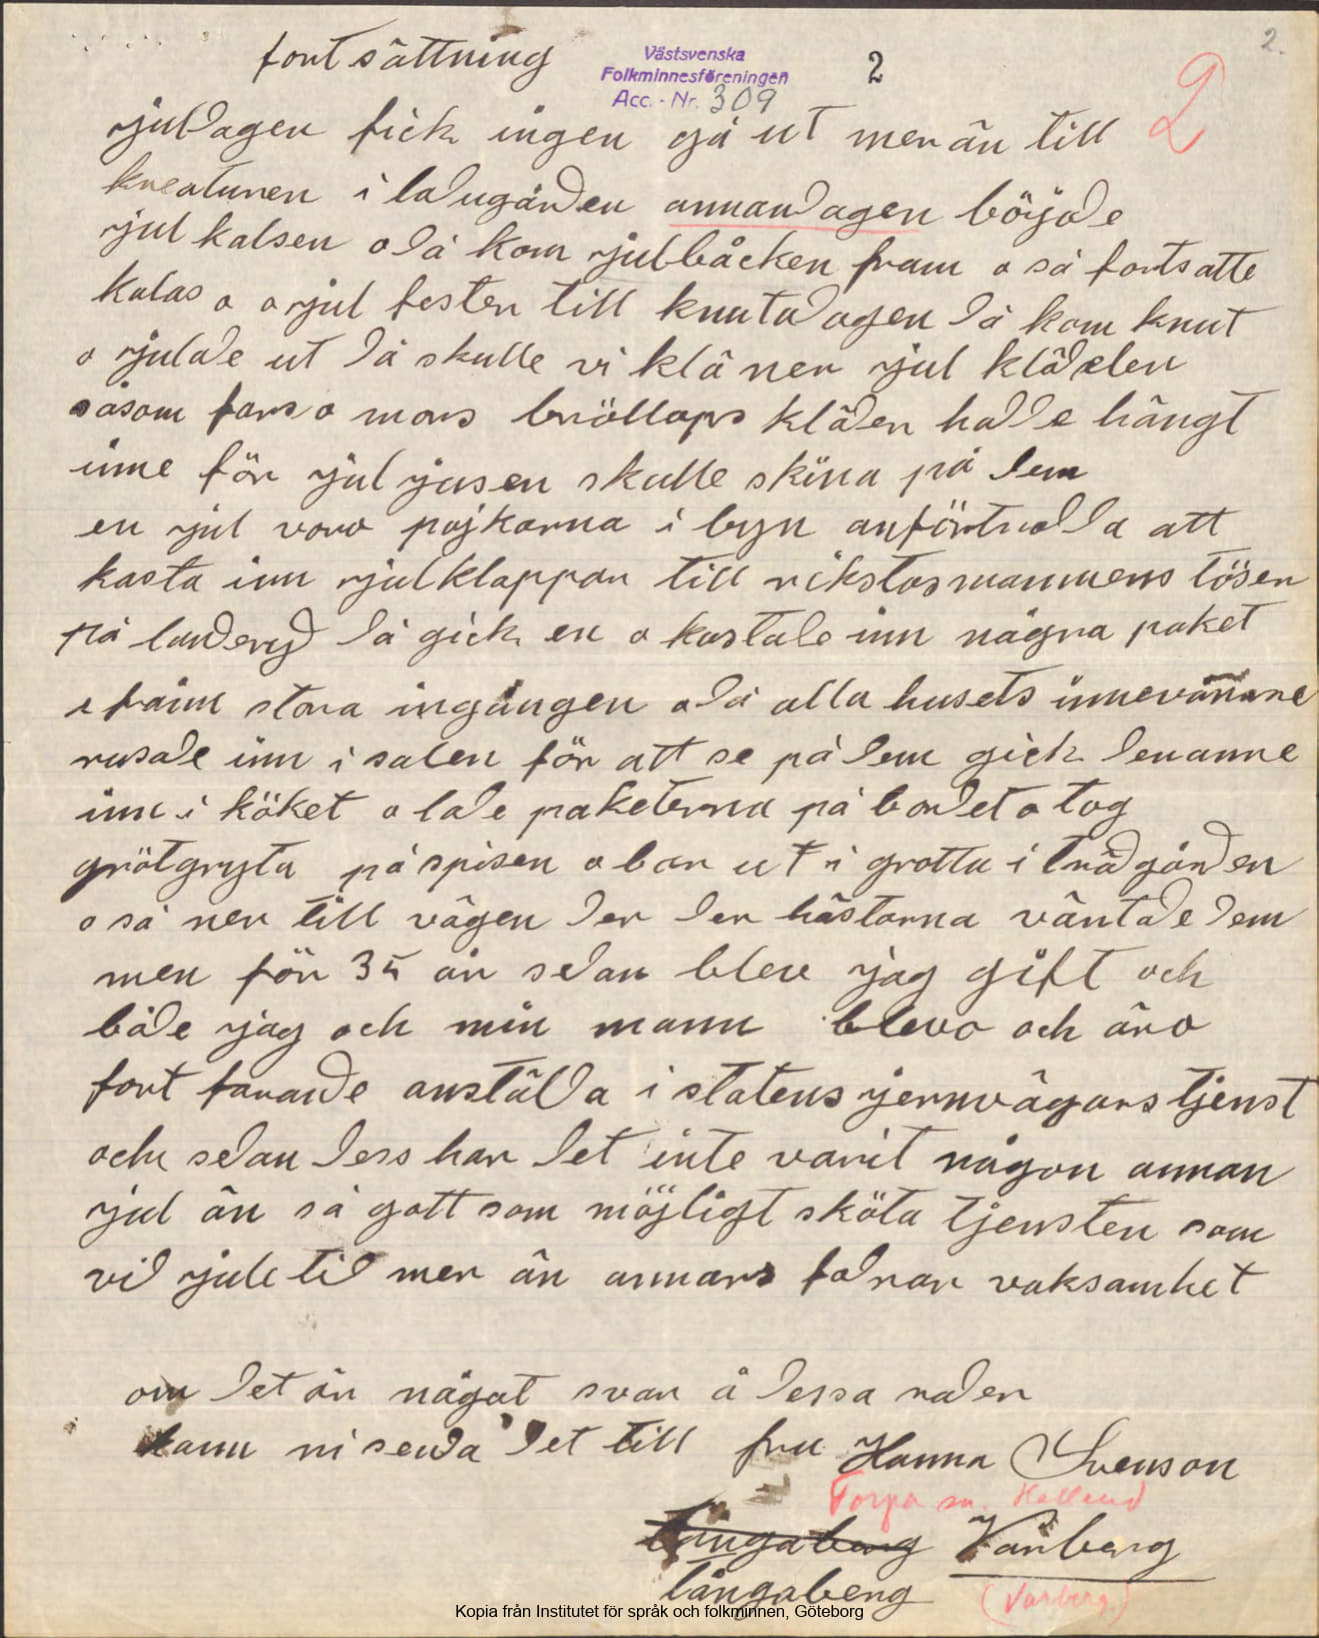 2.
fortsättning
Västsvenska
Folkminnesföreningen
Acc.-Nr. 309
2
2
juldagen fick ingen gå ut mer än till
kreaturen i ladugården annandagen böjde
jul kalsen o då kom julbåcken fram o så fortsatte
kalas o o jul festen till knutdagen då kom knut
o julade ut då skulle vi klä ner jul kläderen
såsom fars o mors bröllops kläder hadde hängt
inne för jul jusen skulle skina på dem
en jul voro pojkarna i byn anförtrodda att
kasta inn julklappar till rikstasmannens töser
på landeryd då gick en o kastade inn några paket
stora ingången o då alla husets innevånare
rusade inn i salen för att se på dem gick den anne
inn i köket o lade paketerna på bordet o tog
grötgryta på spisen o bar ut i grotta i trädgården
o så ner till vägen der der hästarna väntade dem
men för 35 år sedan blew jag gift och
både jag och min mann blevo och äro
fort farande anstälda i statens jernvägars tjenst
och sedan dess har det inte varit någon annan
jul än så gott som möjligt sköta tjensten som
vid jule tid mer än annars fodrar vaksamhet
om det är något svar å dessa rader
kann ni senda det till fru Hanna Svenson
Torpa sn. Halland
Långaberg Varberg
långaberg (Varberg.)
Kopia från Institutet för språk och folkminnen, Göteborg